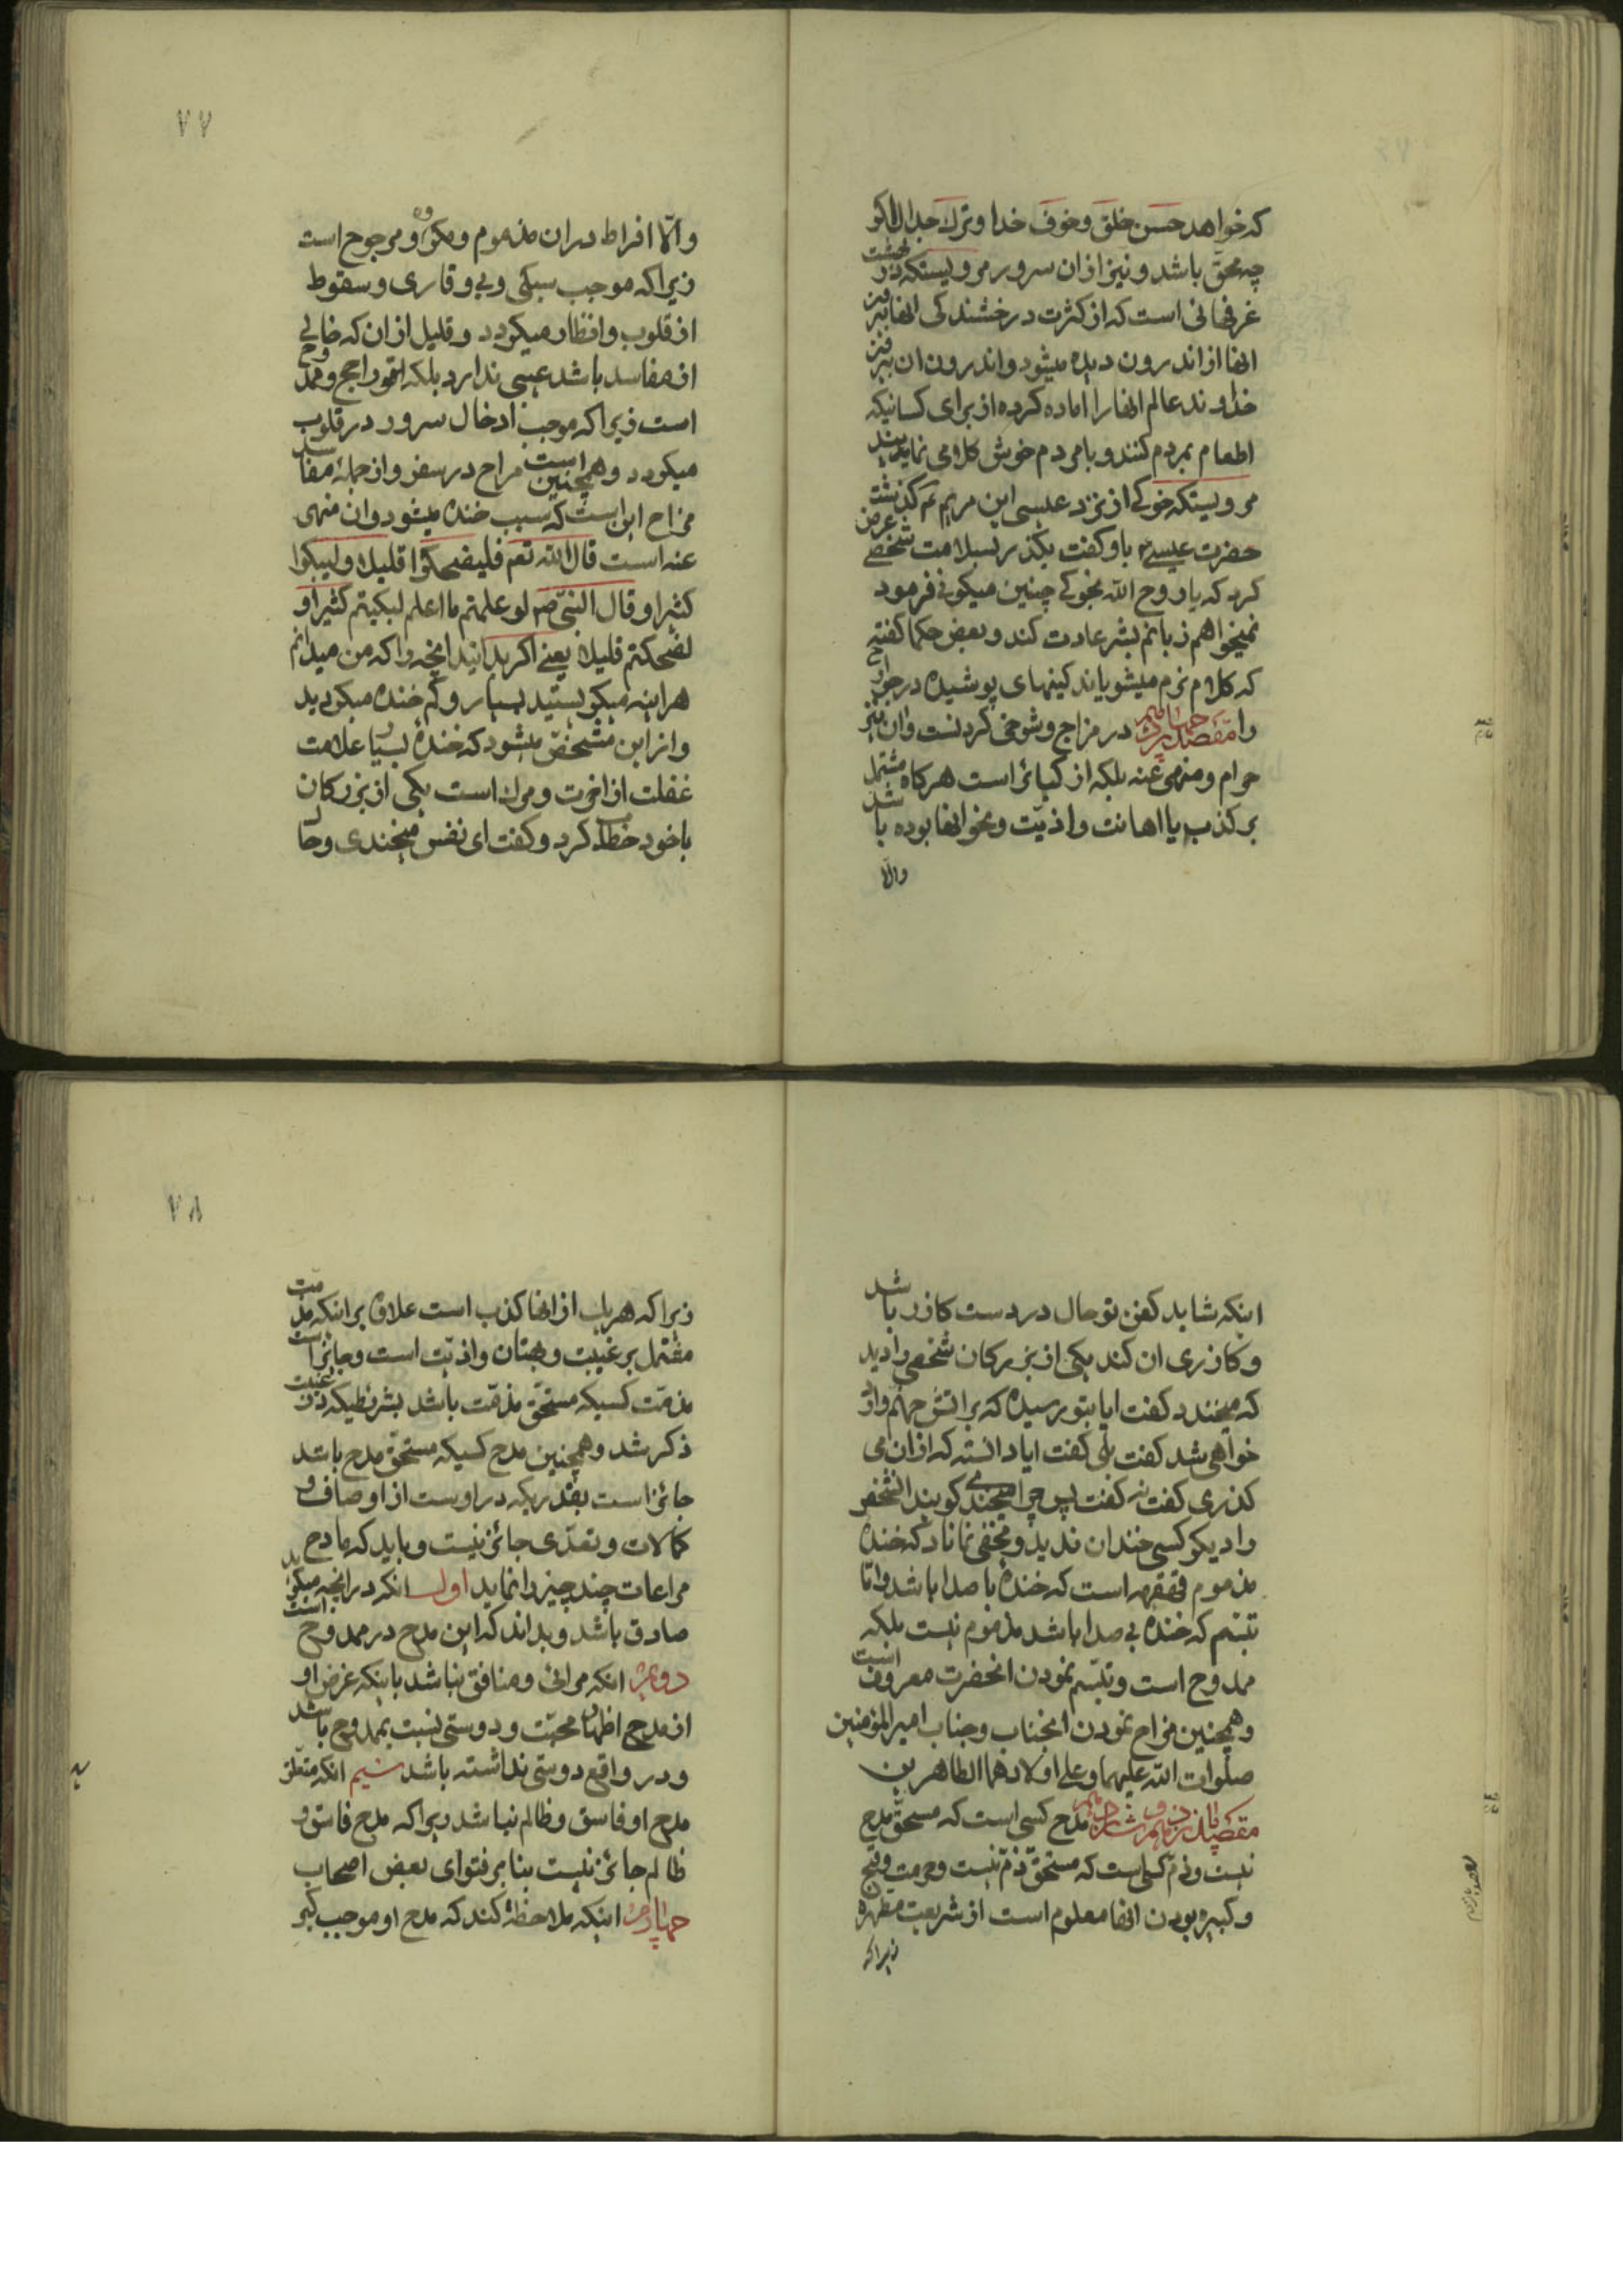 که خواهد حسن خلق و خوف خدا و ترک جدال اکر
چه محق باشد و نیز از ان سرور مرویستکه در بهشت
غرفهائی است که از کثرت درخشندکی انها بیرون
انها از اندرون دیده میشود و اندرون ان بیرون
خداوند عالم انها را اماده کرده از برای کسانیکه
اطعام بمردم کنند و با مردم خوش کلامی نمایند
مرویستکه خوکی از نزد عیسی ابن مریم ع کذشت
حضرت عیسی باو کفت بکذر بسلامت شخصی عرض
کرد که یا روح الله بخوکی چنین میکوئی فرمود
نمیخواهم زبانم بشر عادت کند و بعض حکما کفته
که کلام نرم میشویاند کینهای پوشیده در جوارح
را مقصد چهاردهم در مزاح و شوخی کردنست و ان نیز
حرام و منهی عنه بلکه از کبائر است هرکاه مشتمل
بر کذب یا اهانت و اذیت و نحو انها بوده باشد
والا
۷۷
والا افراط دران مذموم و مکروه و مرجوح است
زیرا که موجب سبکی و بی وقاری و سقوط
از قلوب و انظار میکردد و قلیل از ان که خالی
از مفاسد باشد عیبی ندارد بلکه راجح و ممدوح
است زیرا که موجب ادخال سرور در قلوب
میکردد و همچنین است مزاح در سفر و از جمله مفاسد
مزاح این است که سبب خنده میشود و ان منهی
عنه است قال الله تعم فلیضحکوا قلیلا ولیبکوا
کثیرا و قال النبی ص لو علمتم ما اعلم لبکیتم کثیرا و
لضحکتم قلیلا یعنی اکر بدانید انچه را که من میدانم
هراینه میکریستید بسیار و کم خنده میکردید
و از این مشخص میشود که خندۀ بسیار علامت
غفلت از اخرت و مرک است یکی از بزرکان
با خود خطاب کرد و کفت ای نفس میخندی و حال
اینکه شاید کفن تو حال در دست کازر باشد
و کازری ان کند یکی از بزرکان شخصی را دید
که میخندد کفت ایا بتو رسیده که بر اتش جهنم وارد
خواهی شد کفت بلی کفت ایا دانسته که از ان می
کذری کفت نه کفت پس چرا میخندی کویند انشخص
را دیکر کسی خندان ندید و مخفی نماناد که خندۀ
مذموم قهقهه است که خندۀ با صدا باشد و اما
تبسم که خندۀ بی صدا باشد مذموم نیست بلکه
ممدوح است و تبسم نمودن انحضرت معروف است
و همچنین مزاح نمودن انجناب و جناب امیرالمؤمنین
صلوات الله علیهما و علی اولادهما الطاهرین
مقصد پانزدهم و شانزدهم مدح کسی است که مستحق مدح
نیست و ذم کسی است که مستحق ذم نیست و حرمت و قبح
و کبیره بودن انها معلوم است از شریعت مطهره
زیرا که
۷۸
زیرا که هر یک از انها کذب است علاوه بر اینکه مذمت
مشتمل بر غیبت و بهتان و اذیت است و جایز است
مذمت کسیکه مستحق مذمت باشد بشرطیکه در غیبت
ذکر شد و همچنین مدح کسیکه مستحق مدح باشد
جائز است بقدریکه در اوست از اوصاف و
کمالات و تعدی جائز نیست و باید که مادح
مراعات چند چیز را نماید اول انکه در انچه میکوید
صادق باشد و بداند که این مدح در ممدوح است
دویم انکه مرائی و منافق نباشد باینکه غرض او
از مدح اظهار محبت و دوستی نسبت بممدوح باشد
و در واقع دوستی نداشته باشد سیم انکه متعلق
مدح او فاسق و ظالم نباشد زیرا که مدح فاسق و
ظالم جائز نیست بنا بر فتوای بعض اصحاب
چهارم اینکه ملاحظه کند که مدح او موجب کبر